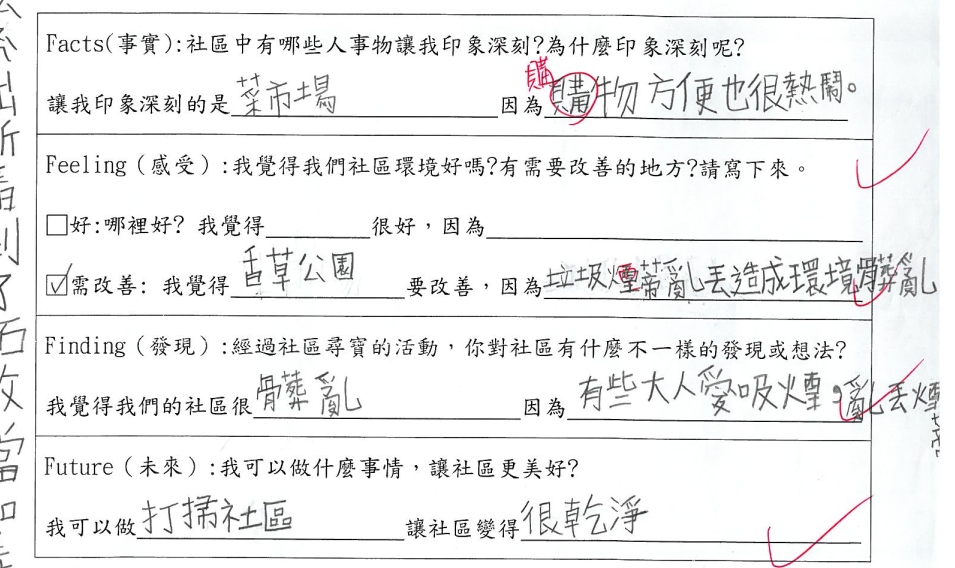 Facts(事實):社區中有哪些人事物讓我印象深刻?為什麼印象深刻呢?
購
讓我印象深刻的是菜市場 因為購物方便也很熱鬧。
Feeling(感受):我覺得我們社區環境好嗎?有需要改善的地方?請寫下來。
□好:哪裡好? 我覺得 很好,因為
☑需改善: 我覺得香草公園 要改善,因為垃圾煙蒂亂丟造成環境髒亂
Finding(發現):經過社區尋寶的活動,你對社區有什麼不一樣的發現或想法?
我覺得我們的社區很髒亂 因為 有些大人愛吸煙,亂丟煙蒂
Future(未來):我可以做什麼事情,讓社區更美好?
我可以做打掃社區 讓社區變得很乾淨